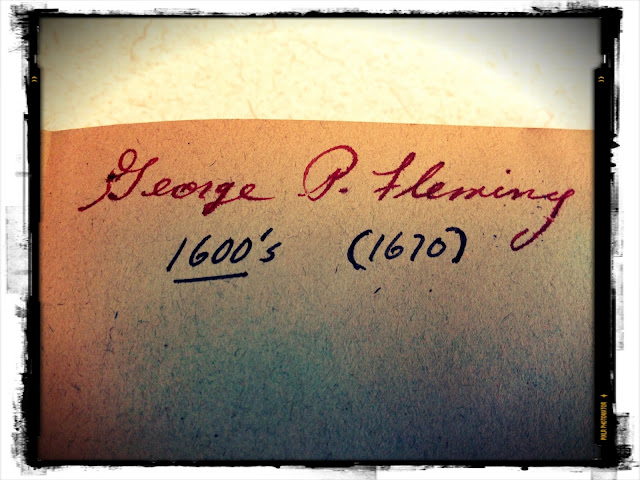 George P. Fleming
1600's (1670)